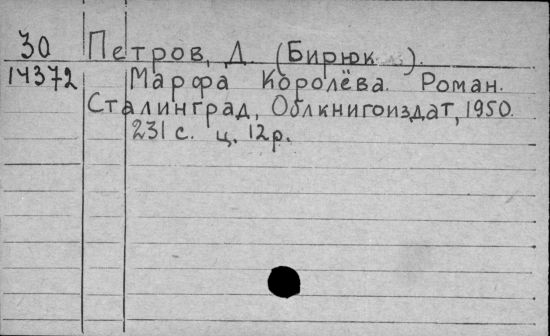 30 Петров, Д. (Бирюк ).
14372 Марфа Королёва. Роман.
Сталинград, Облкнигоиздат, 1950.
231 с. ц. 12 р.